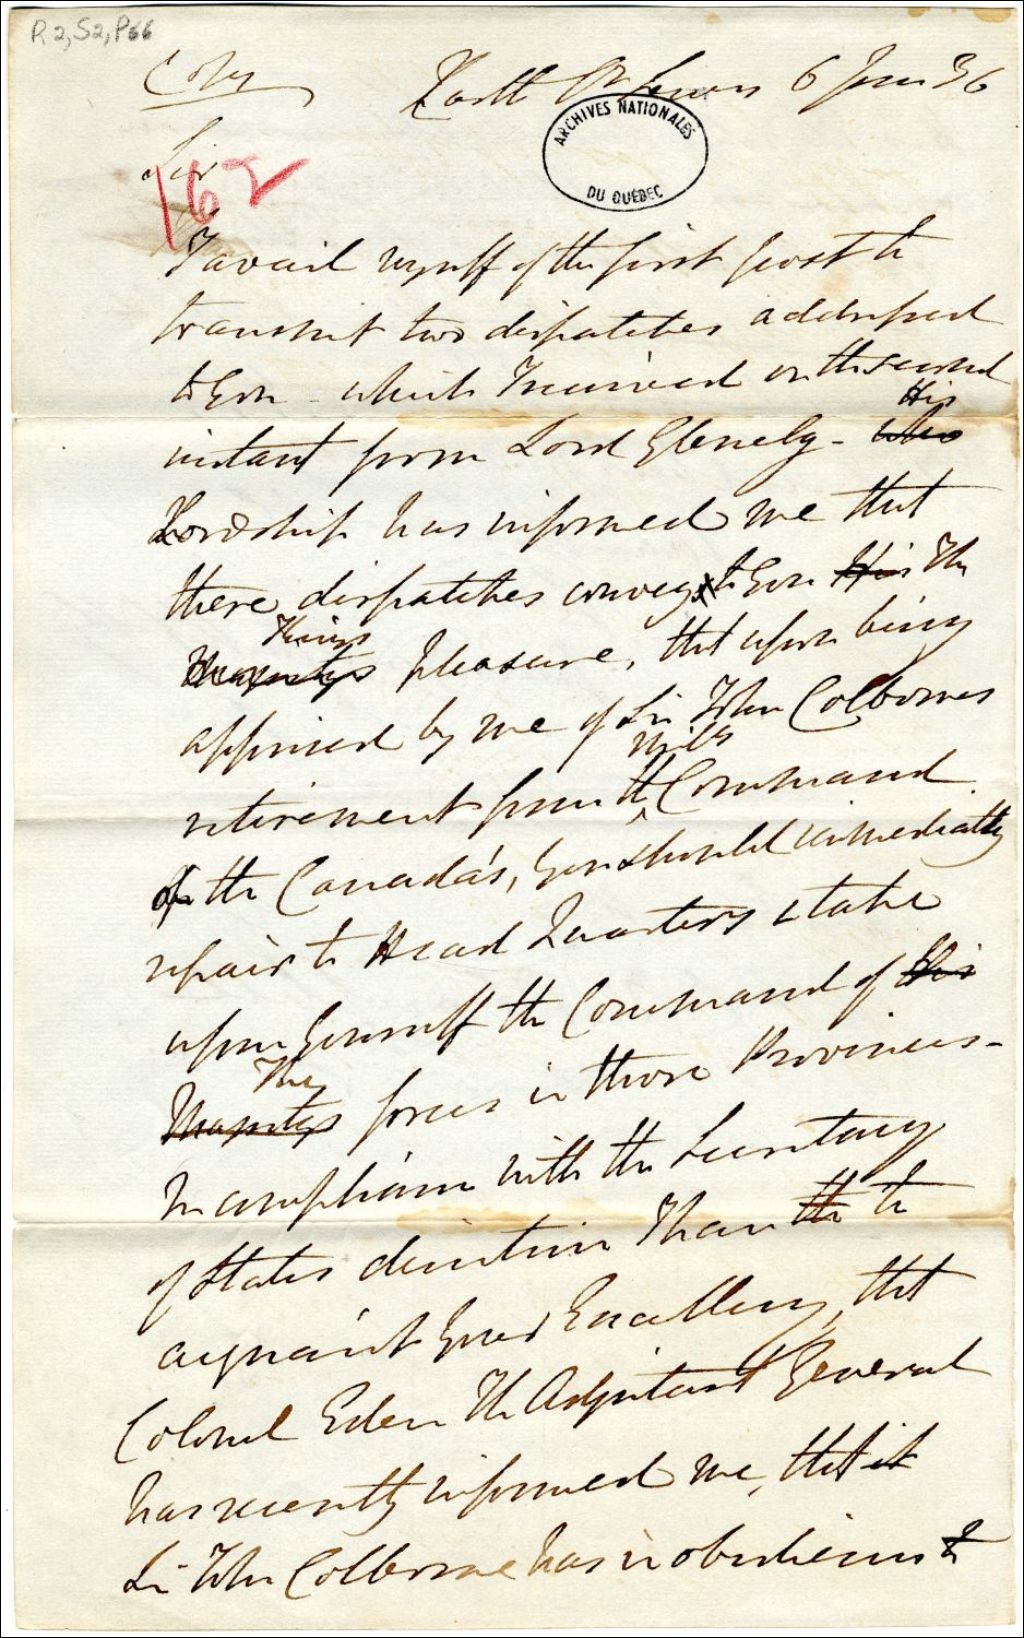 P2,S2,P66
Copy Castle St Lewis 6 June 36
ARCHIVES NATIONALES
DU QUÉBEC
Sir
162
I avail myself of the first post to
transmit two dispatches addressed
to you - which I received on the second
His
instant from Lord Glenelg -
Lordship has informed me that
these dispatches convey to you His The
Kings
Majestys pleasure, that upon being
apprised by me of Sir John Colbornes
retirement from the Command
of the Canada's, you should immediately
repair to Head Quarters & take
upon yourself the Command of His
The
Majestys forces in those Provinces -
In compliance with the Secretary
of States direction I have the to
acquaint your Excellency, that
Colonel Eden The Adjutant General
has recently informed me, that it
Sir John Colborne has in obedience to